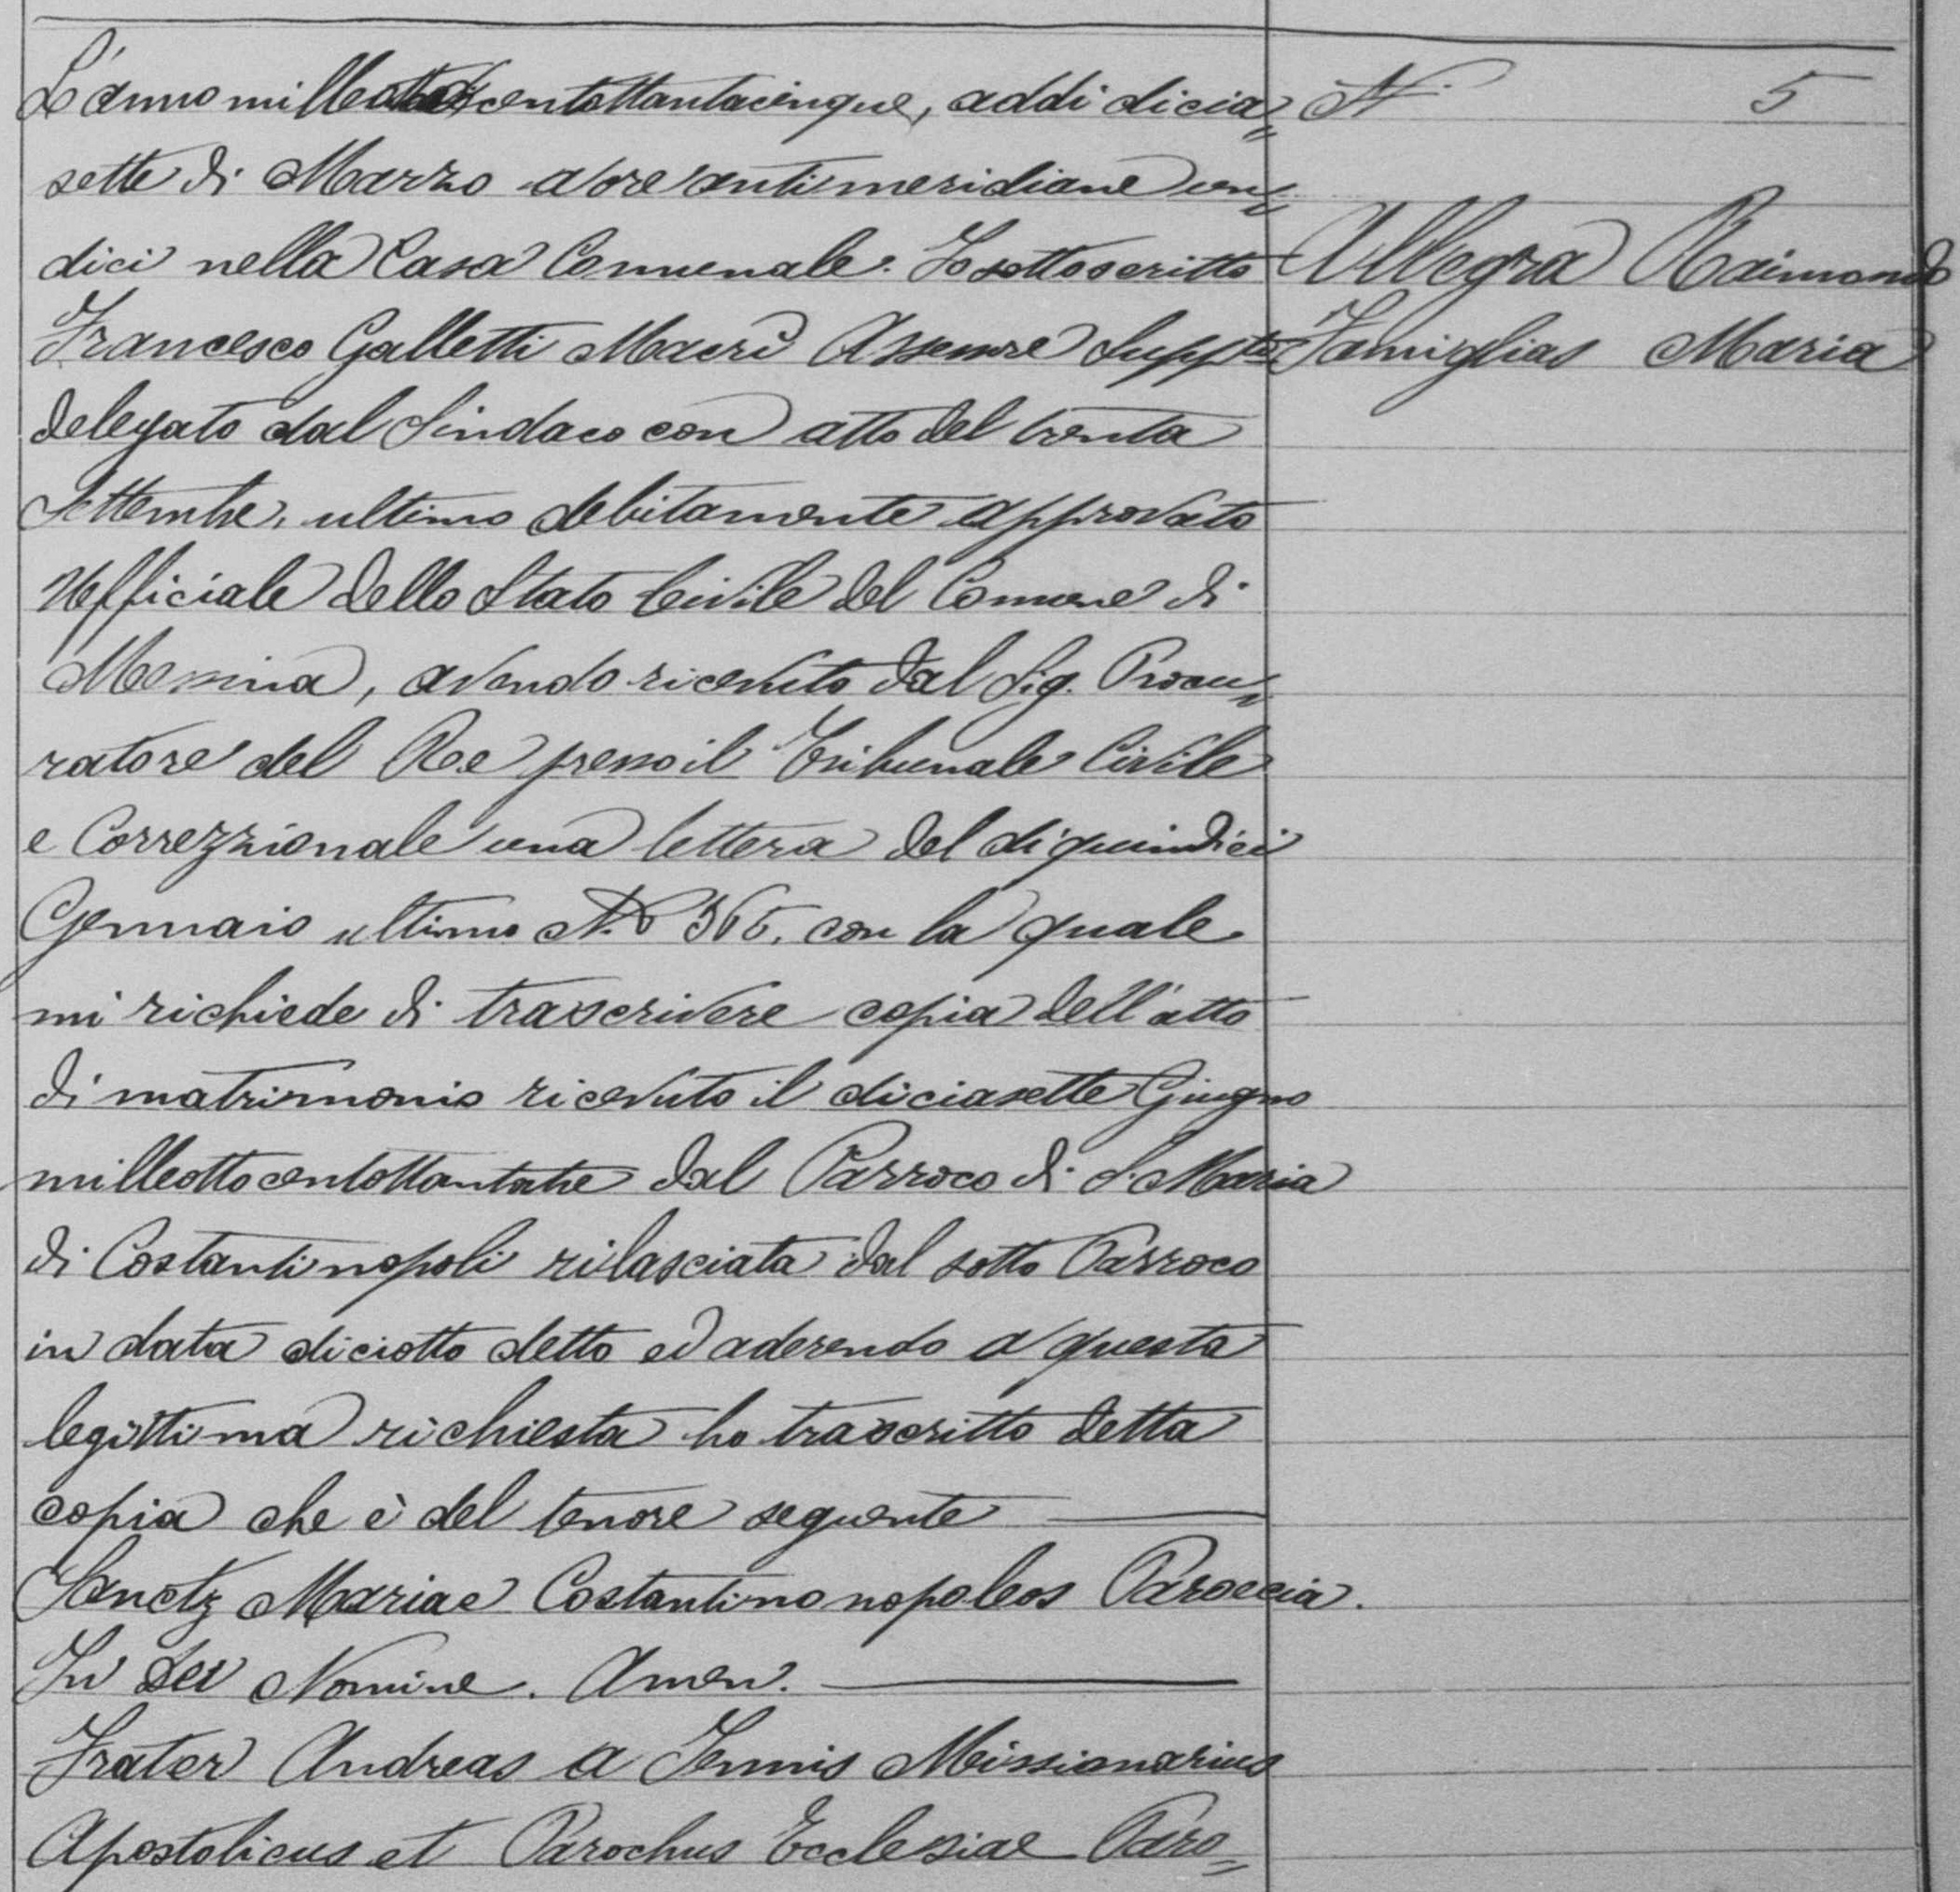 L'anno milleottocentottantacinque, addi dicia=
sette di Marzo a ore antimeridiane un=
dici nella Casa Comunale. Io sottoscritto
Francesco Galletti Macrì Assessore Suppte
delegato dal Sindaco con atto del trenta
Settembre ultimo debitamente approvato
Uefficiale dello Stato Civile del Comune di
Messina, avendo ricevuto dal Sig. Procu=
ratore del Re presso il Tribunale Civile
e Correzzionale una lettera del di quindici
Gennaio ultimo N.o con la quale
mi richiede di trascrivere copia dell'atto
di matrimonio ricevuto il diciasette Giugno
milleottocentottantatre dal Parroco di S. Maria
di Costantinopoli rilasciata dal sotto Parroco
in data diciotto detto ed aderendo a questa
legittima richiesta ho trascritto detta
copia che è del tenore seguente
Mariae Costantinonopoleos Paroecia.
In Dei Nomine. Amen.
Frater Andreas a Missionarius
Apostolicus et Parochus Ecclesiae Paro=
N. 5
Allegra Raimondo
Famiglias Maria